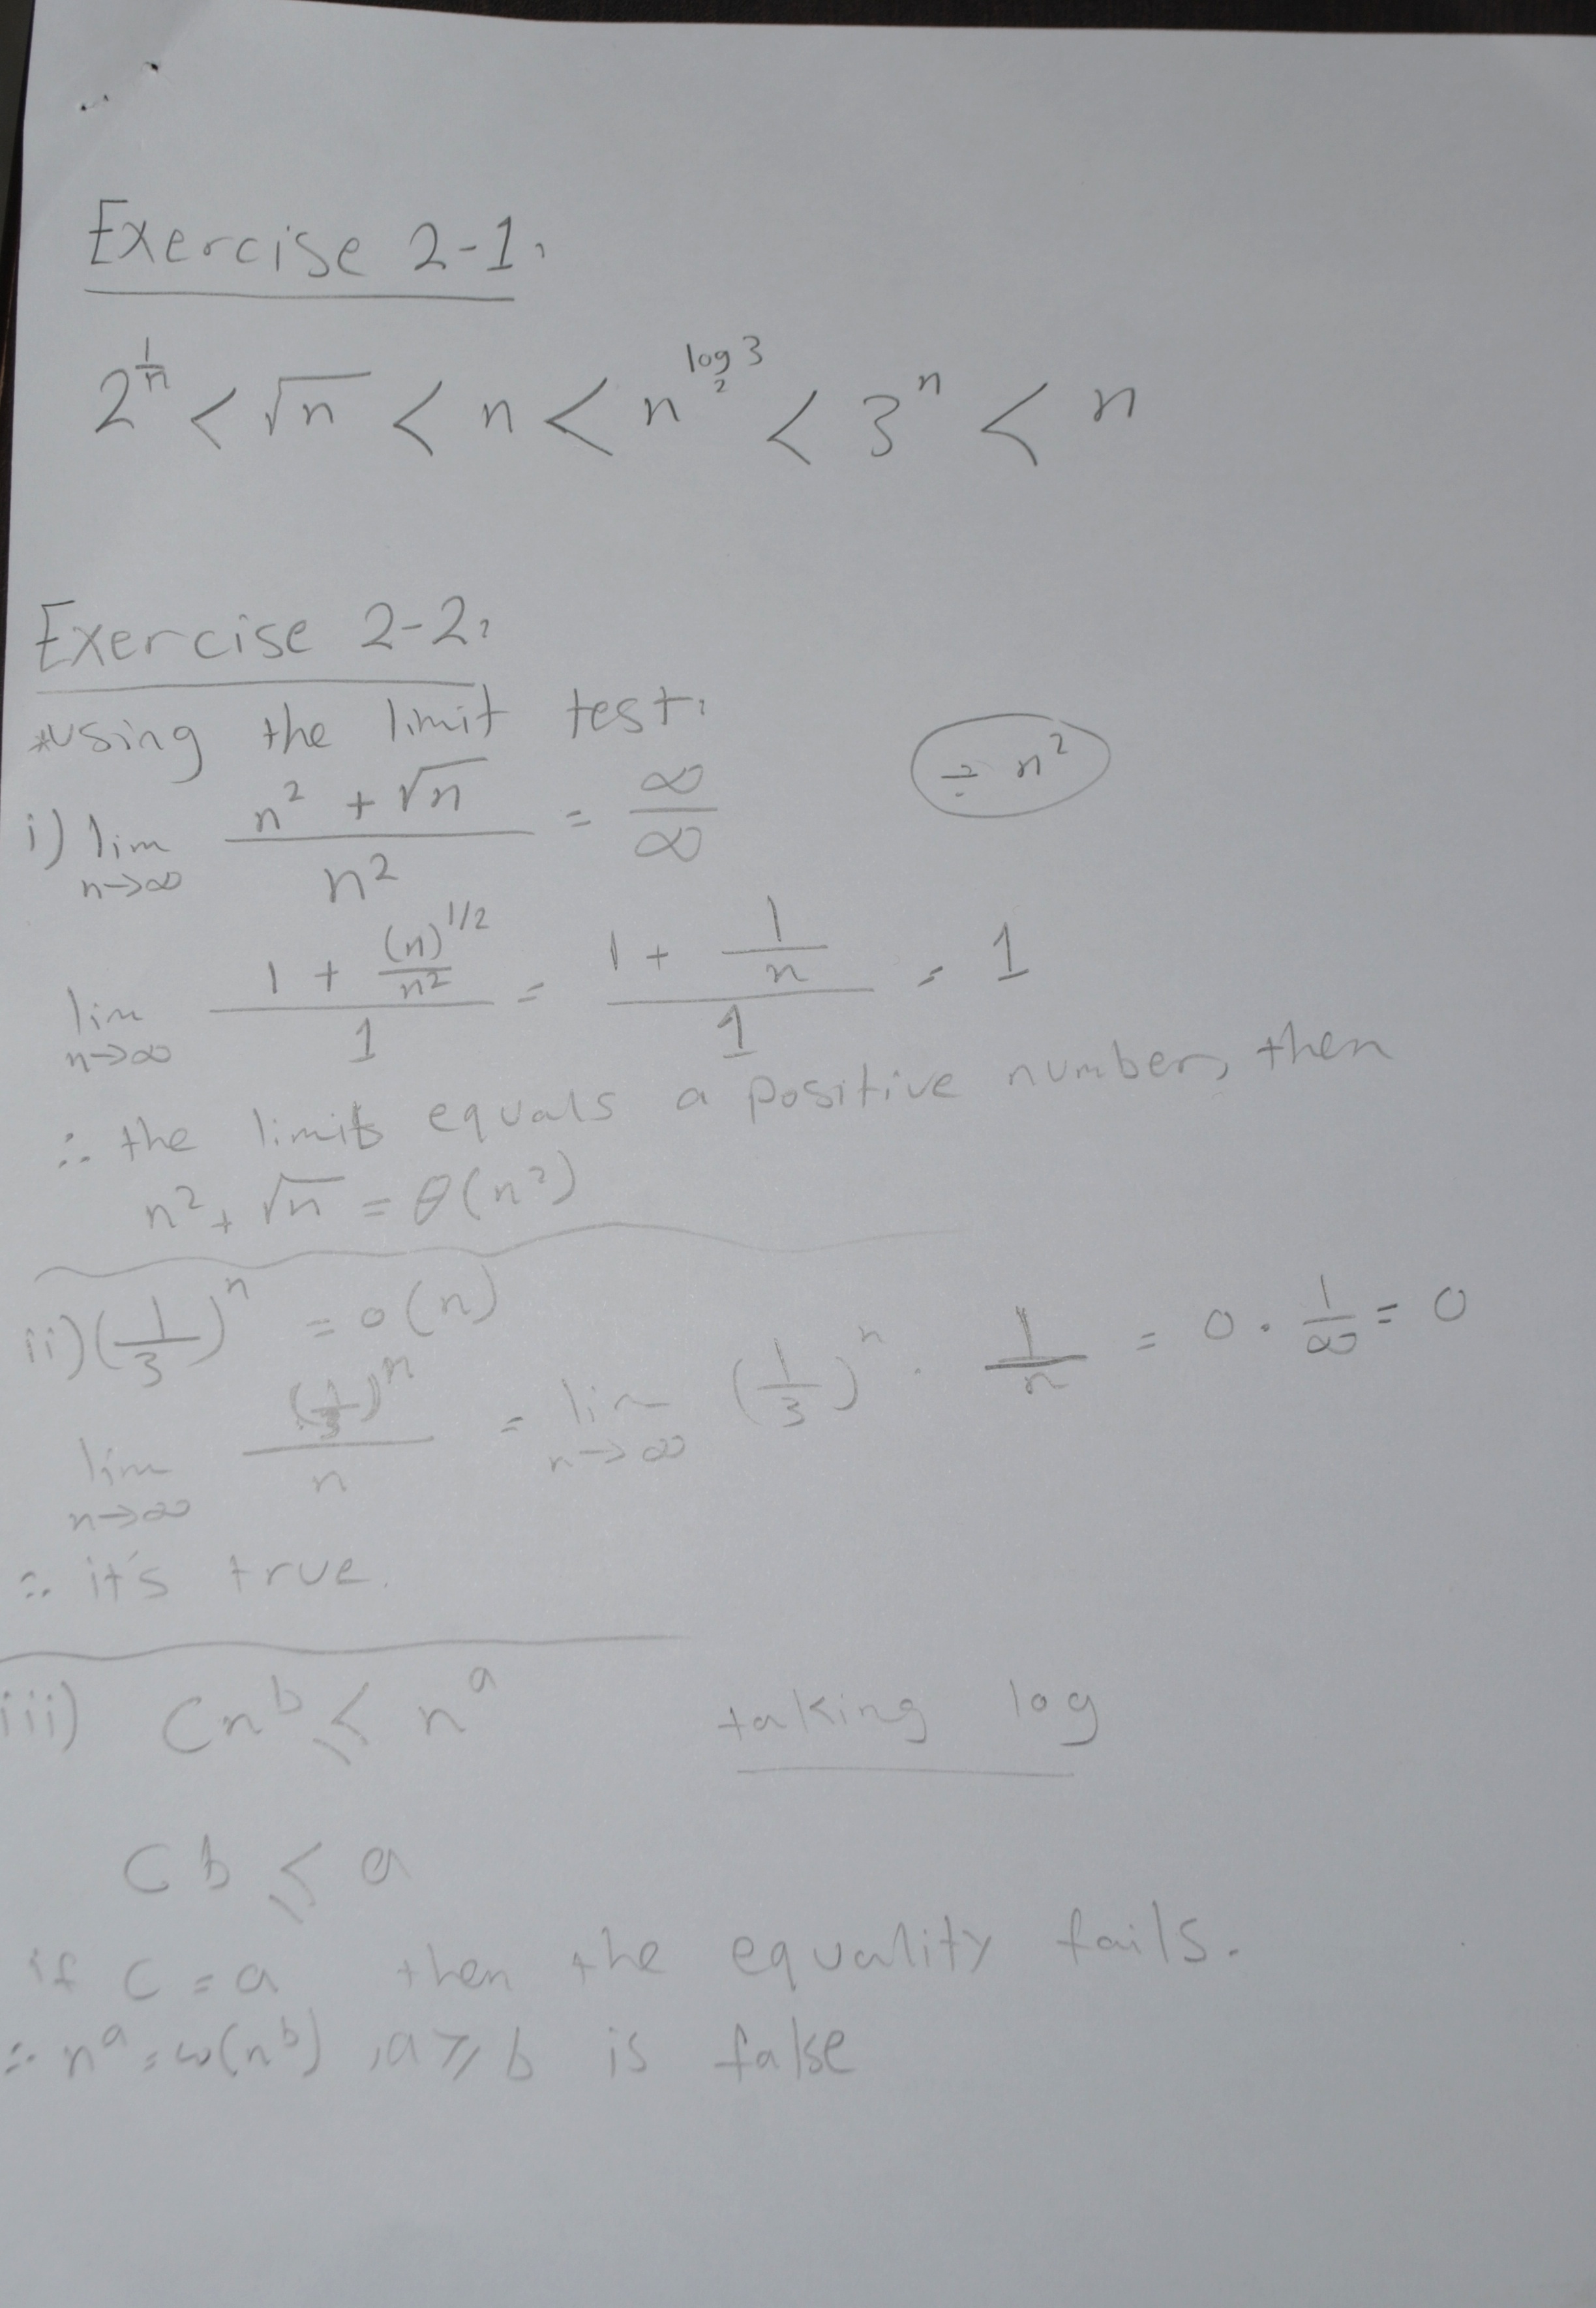 Exercise 2-1:
2^(1/n) < √n < n < n^(log₂3) < 3^n < n
Exercise 2-2:
*using the limit test:
i) lim n→∞ (n² + √n)/n² = ∞/∞ (÷ n²)
lim n→∞ (1 + (n)^(1/2)/n²)/1 = (1 + 1/n)/1 = 1
∴ the limits equals a positive number, then
n² + √n = θ(n²)
ii) (1/3)^n = o(n)
lim n→∞ (1/3)^n/n = lim n→∞ (1/3)^n · 1/n = 0 · 1/∞ = 0
∴ it's true.
iii) Cn^b ≤ n^a taking log
Cb ≤ a
if C = a then the equality fails.
∴ n^a = ω(n^b), a ≥ b is false